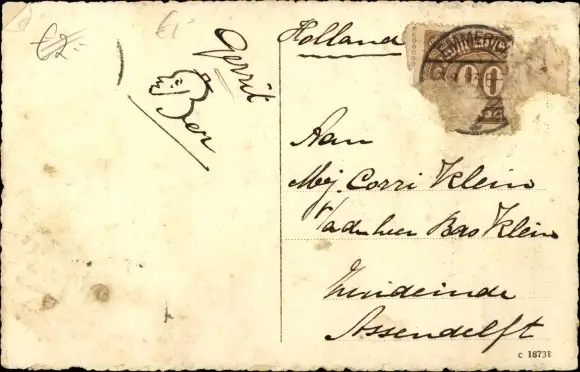 €2,-
€1,-
Gerrit
Ber
Holland
EMMERICH
Aan
Mej. Corri Klein
p/a den heer Bas Klein
Zuideinde
Assendelft
c 18731